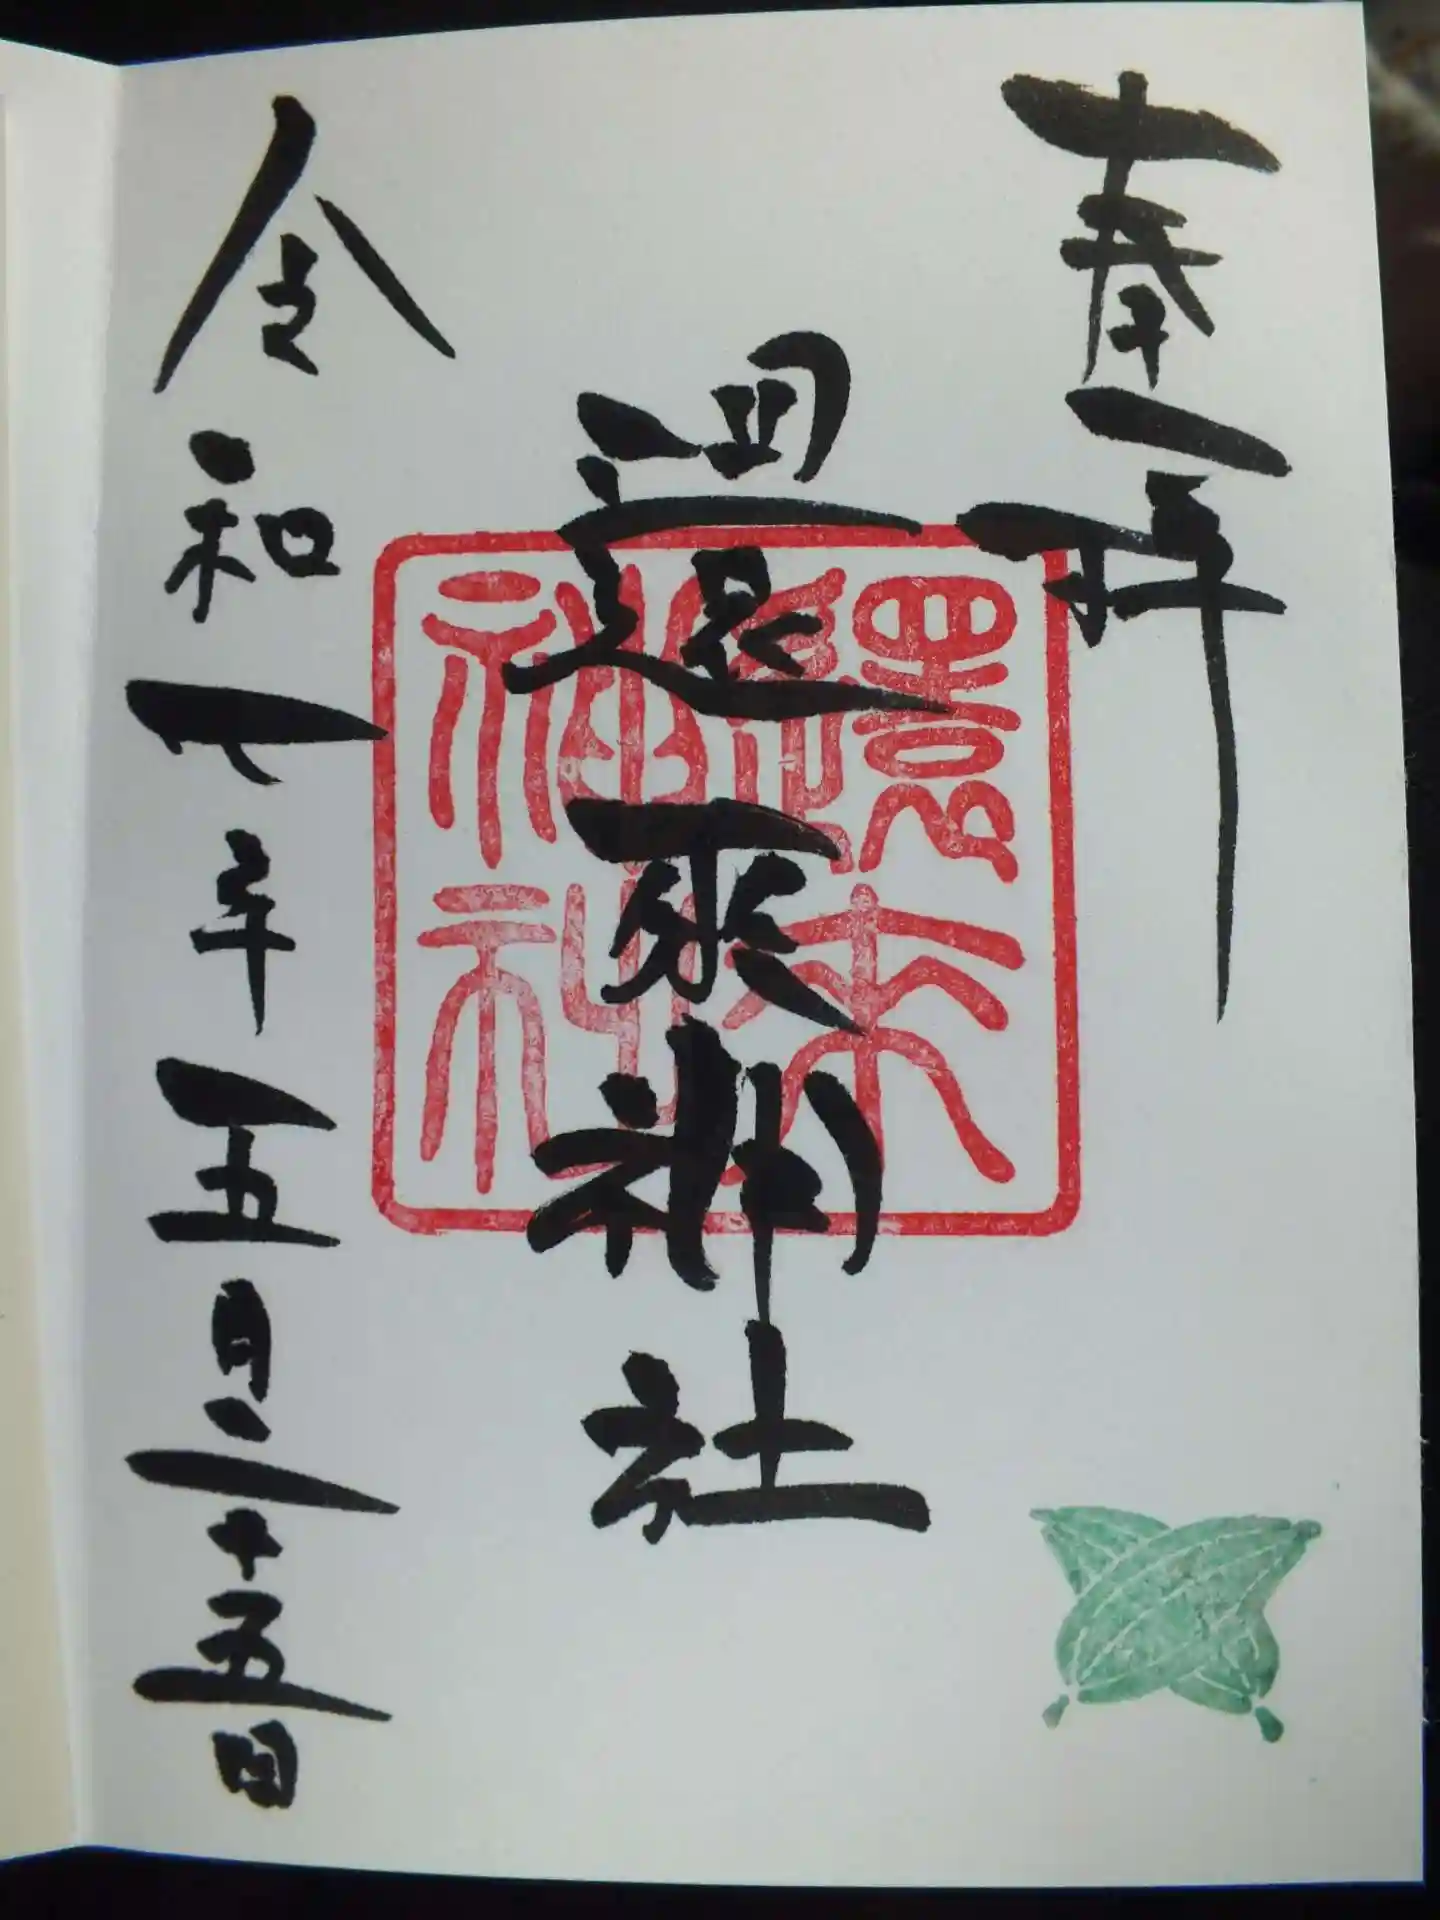 奉拝
還來神社
令和七年五月二十五日
還来神社